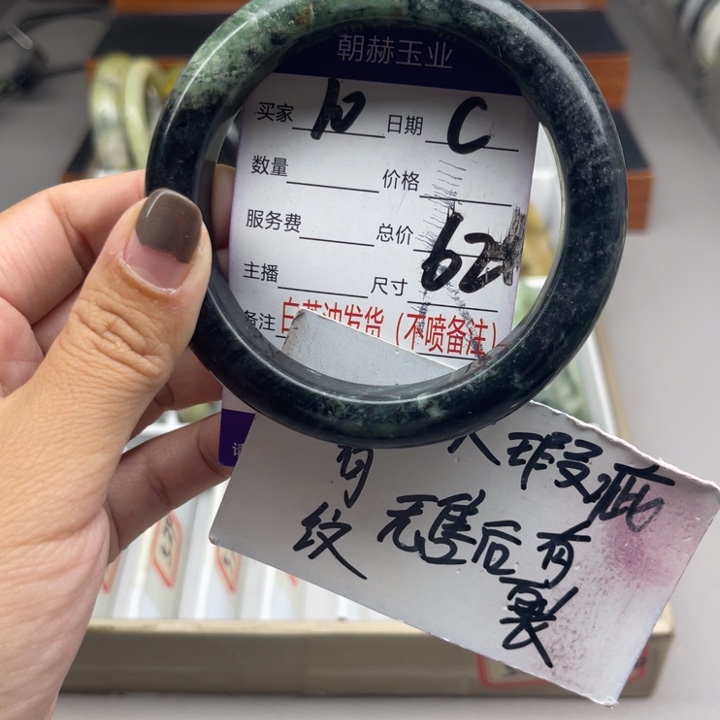 朝赫玉业
买家 10 日期 C
数量 价格
服务费 总价
主播 尺寸 62
备注 白茶油发货（不喷备注）
有 人瑕疵
纹 无售后有
裂